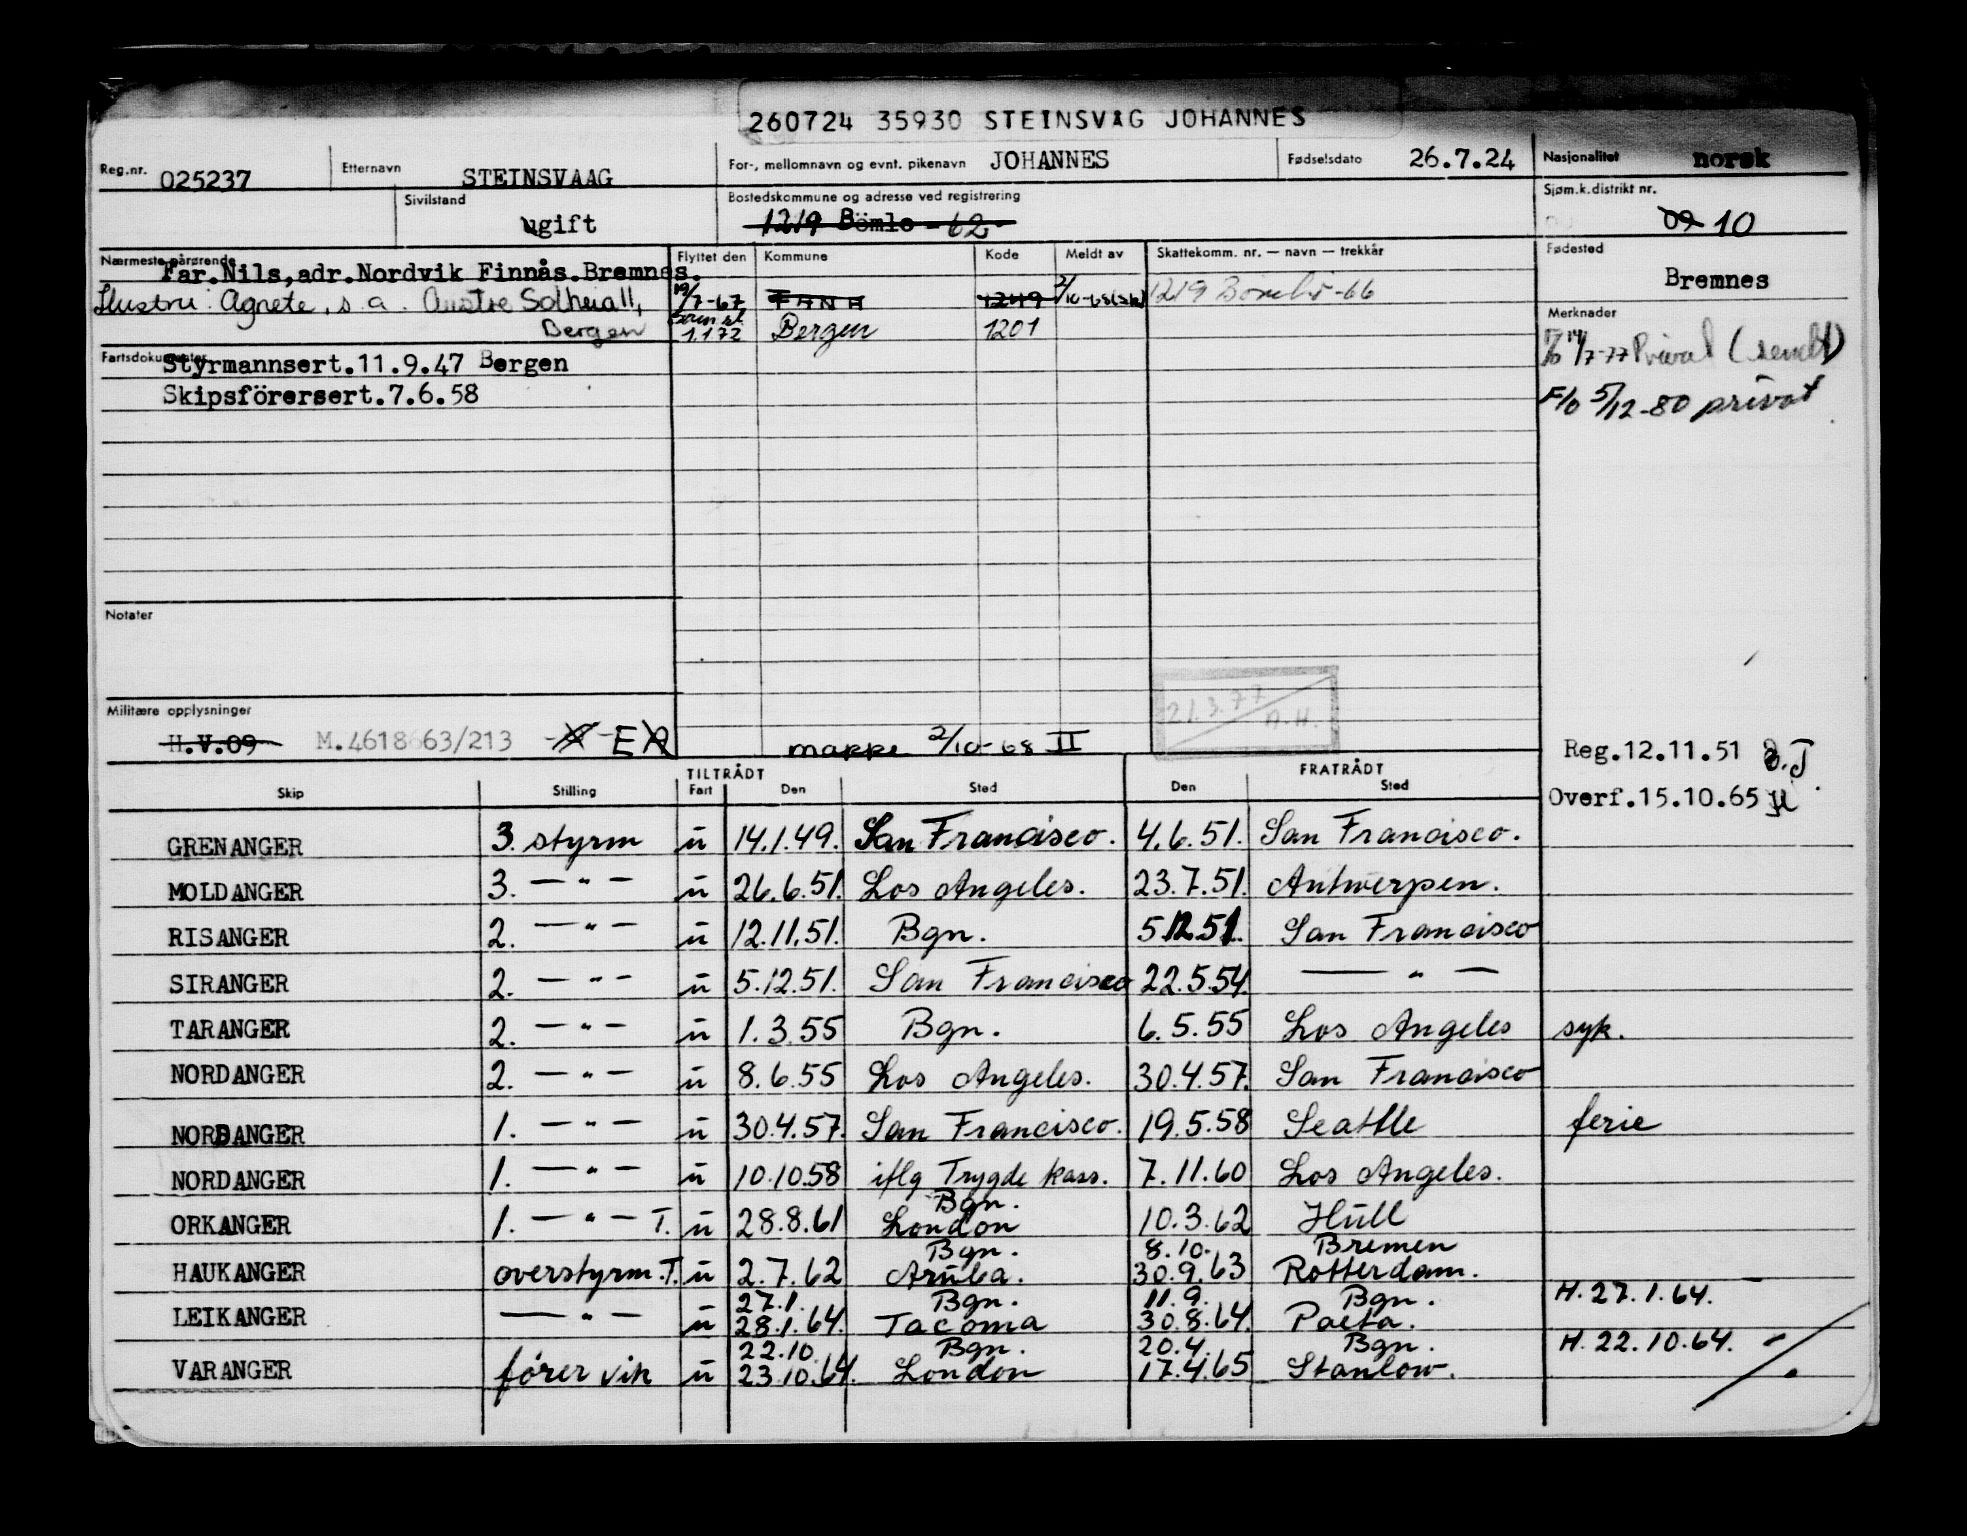 260724 35930 STEINSVAG JOHANNES
Reg.nr. 025237 Etternavn STEINSVAAG For-, mellomnavn og evnt. pikenavn JOHANNES Fødselsdato 26.7.24 Nasjonalitet norsk
Sivilstand ugift Bostedskommune og adresse ved registrering 1219 Bömlo -62 Sjøm.k.distrikt nr. 09 10
Nærmeste pårørende Flyttet den Kommune Kode Meldt av Skattekomm. nr. — navn — trekkår Fødested
Far.Nils,adr.Nordvik Finnås.Bremnes. Bremnes
Hustru: Agnete, s.a. Austre Solheia 11, 19/7-67 FANA 1249 2/10-68 1219 Bömlo -66
Bergen 1.1.72 Bergen 1201
Merknader
F/o 14/7-77 Privat (sendt)
F/o 5/12-80 privat
Fartsdokumenter
Styrmannsert.11.9.47 Bergen
Skipsförersert.7.6.58
Notater
21.3.77 A.H.
Militære opplysninger
H.V.09 M.4618663/213 ER mappe 2/10-68 II
Reg.12.11.51
Overf.15.10.65
TILTRÅDT FRATRÅDT
Skip Stilling Fart Den Sted Den Sted
GRENANGER 3. styrm u 14.1.49. San Francisco. 4.6.51. San Francisco.
MOLDANGER 3. — " — u 26.6.51. Los Angeles. 23.7.51. Antwerpen.
RISANGER 2. — " — u 12.11.51. Bgn. 5.12.51. San Francisco
SIRANGER 2. — " — u 5.12.51. San Francisco 22.5.54. — " —
TARANGER 2. — " — u 1.3.55 Bgn. 6.5.55 Los Angeles syk.
NORDANGER 2. — " — u 8.6.55 Los Angeles. 30.4.57. San Francisco
NORDANGER 1. — " — u 30.4.57. San Francisco. 19.5.58 Seattle ferie
NORDANGER 1. — " — u 10.10.58 iflg Trygde kass. 7.11.60 Los Angeles.
Bgn.
ORKANGER 1. — " — T. u 28.8.61 London 10.3.62 Hull
Bgn. 8.10. Bremen
HAUKANGER overstyrm.T. u 2.7.62 Aruba. 30.9.63 Rotterdam.
27.1. Bgn. 11.9. Bgn. H. 27.1.64.
LEIKANGER — " — u 28.1.64. Tacoma 30.8.64. Paita.
22.10. Bgn. 20.4. Bgn. H. 22.10.64.
VARANGER fører vik u 23.10.64. London 17.4.65 Stanlow.